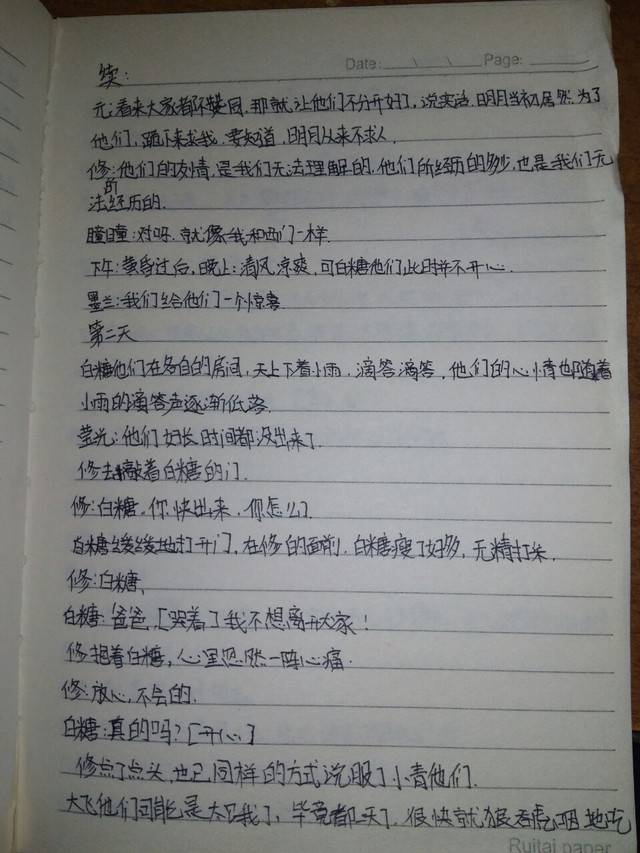 Date: Page:
续:
元:看来大家都不赞同,那就让他们不分开好了,说实话,明月当初居然为了
他们,跪下来求我,要知道,明月从来不求人.
修:他们的友情,是我们无法理解的,他们所经历的多少,也是我们无
法所经历的.
瞳瞳:对呀.就像我和西门一样.
下午:黄昏过后,晚上:清风凉爽,可白糖他们此时并不开心.
墨兰:我们给他们一个惊喜
第二天
白糖他们在各自的房间,天上下着小雨,滴答滴答,他们的心情也随着
小雨的滴答声逐渐低落.
莹光:他们好长时间都没出来了
修去敲着白糖的门.
修:白糖,你快出来,你怎么了.
白糖缓缓地打开门,在修的面前,白糖瘦了好多,无精打采.
修:白糖,
白糖:爸爸,[哭着]我不想离开大家!
修抱着白糖,心里忽然一阵心痛.
修:放心,不会的.
白糖:真的吗?[开心]
修点了点头,也已同样的方式说服了小青他们.
大飞他们可能是太饿了,毕竟都一天了,很快就狼吞虎咽地吃
Ruitai paper